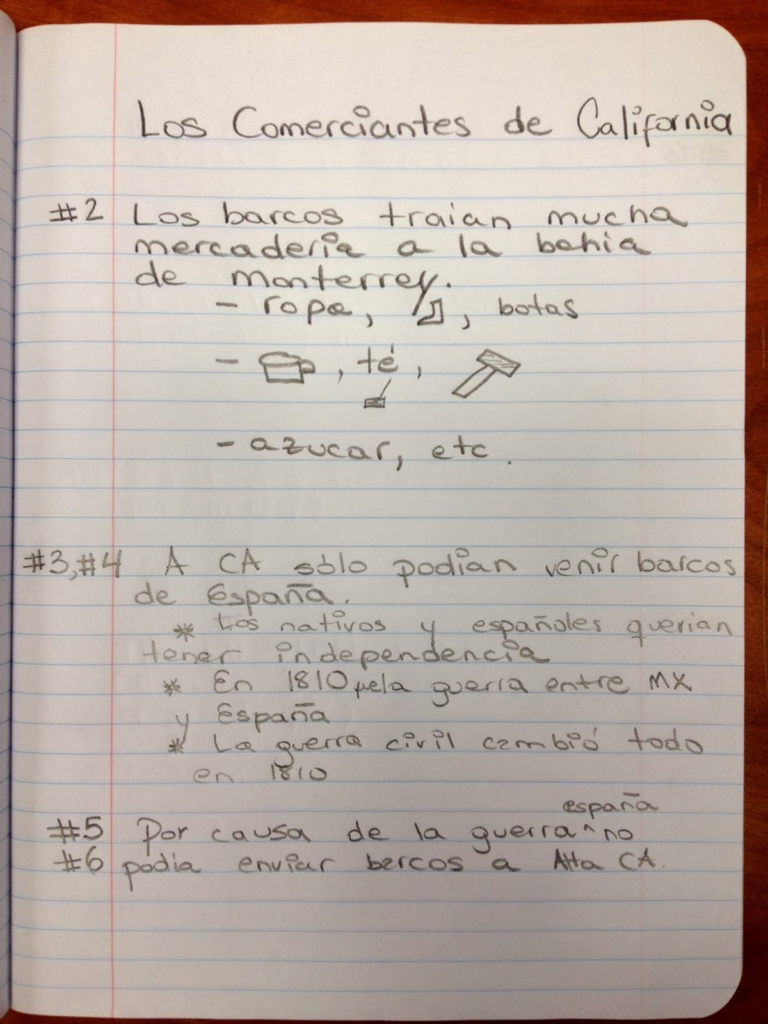 Los Comerciantes de California
#2 Los barcos traian mucha
mercaderia a la bahia
de monterrey.
- ropa, , botas
- , té,
- azucar, etc.
#3,#4 A CA sólo podian venir barcos
de España.
* Los nativos y españoles querian
tener independencia
* En 1810 pela guerra entre MX
y España
* La guerra civil cambió todo
en 1810
españa
#5 Por causa de la guerra ^ no
#6 podia enviar barcos a Alta CA.